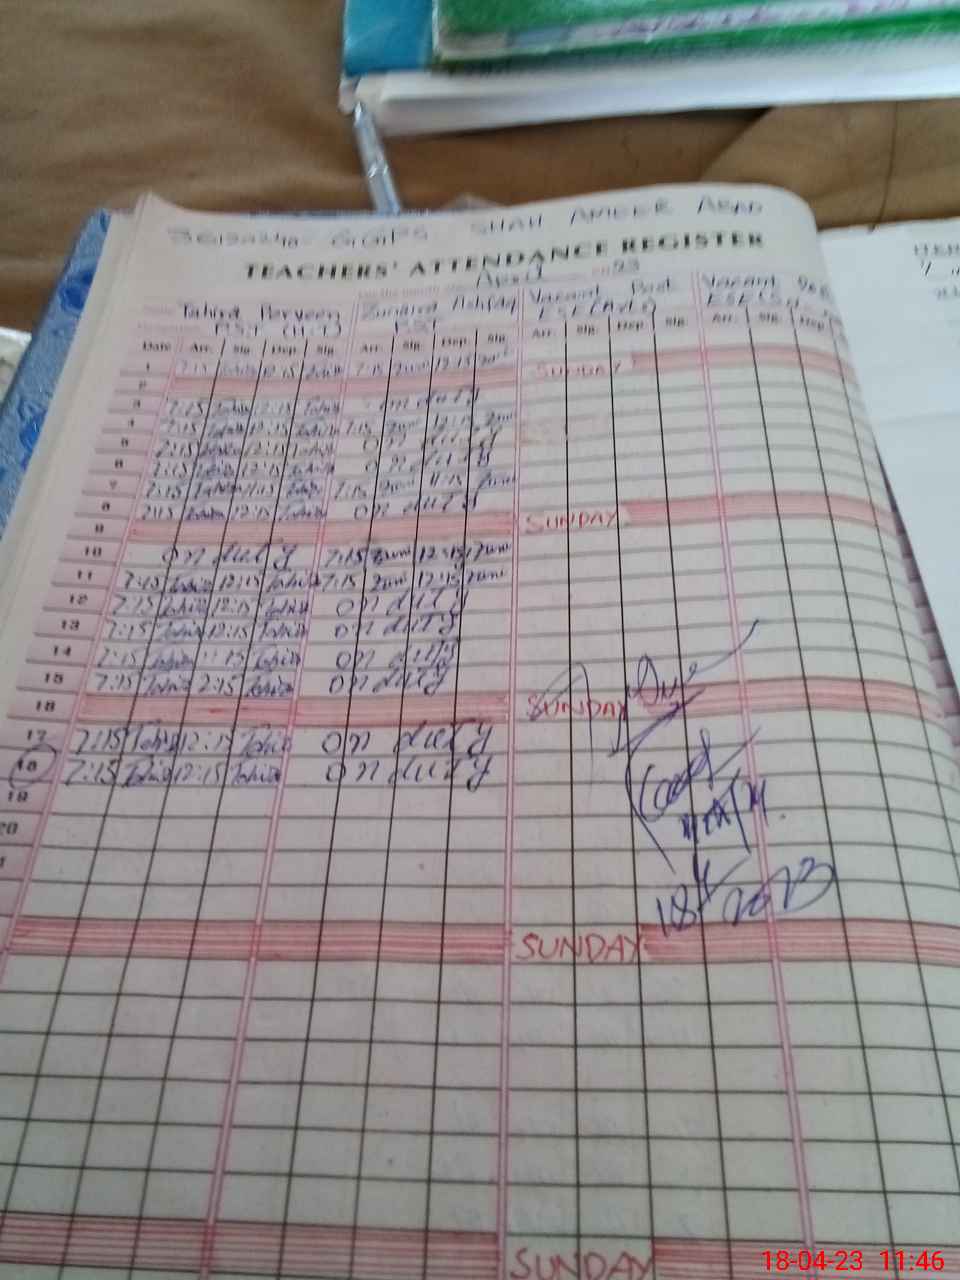 GGPS SHAH AMEER ABAD
TEACHERS' ATTENDANCE REGISTER
April 23
Tahira Perveen Zunaira Ashfaq Vacant Post Vacant
P.S.T (H.T) PST ESE (Arts) ESE (Sci
Date Arr. Sig. Dep. Sig. Arr. Sig. Dep. Sig. Arr. Sig. Dep. Sig. Arr. Sig. Dep.
1 7:15 Tahira 12:15 Tahira 7:15 Zuni 12:15 Zuni
SUNDAY
2
3 7:15 Tahira 12:15 Tahira on duty
4 7:15 Tahira 12:15 Tahira 7:15 Zuni 12:15 Zuni
5 7:15 Tahira 12:15 Tahira on duty
6 7:15 Tahira 12:15 Tahira on duty
7 7:15 Tahira Tahira 7:15 Zuni Zuni
8 7:15 Tahira 12:15 Tahira on duty
9 SUNDAY
10 on duty 7:15 Zuni 12:15 Zuni
11 7:15 Tahira 12:15 Tahira 7:15 Zuni 12:15 Zuni
12 7:15 Tahira 12:15 Tahira on duty
13 7:15 Tahira 12:15 Tahira on duty
14 7:15 Tahira Tahira on duty
15 7:15 Tahira 12:15 Tahira on duty
16 SUNDAY
17 7:15 Tahira 12:15 Tahira on duty
18 7:15 Tahira 12:15 Tahira on duty
19
20
18/4/2023
SUNDAY
SUNDAY
18-04-23 11:46